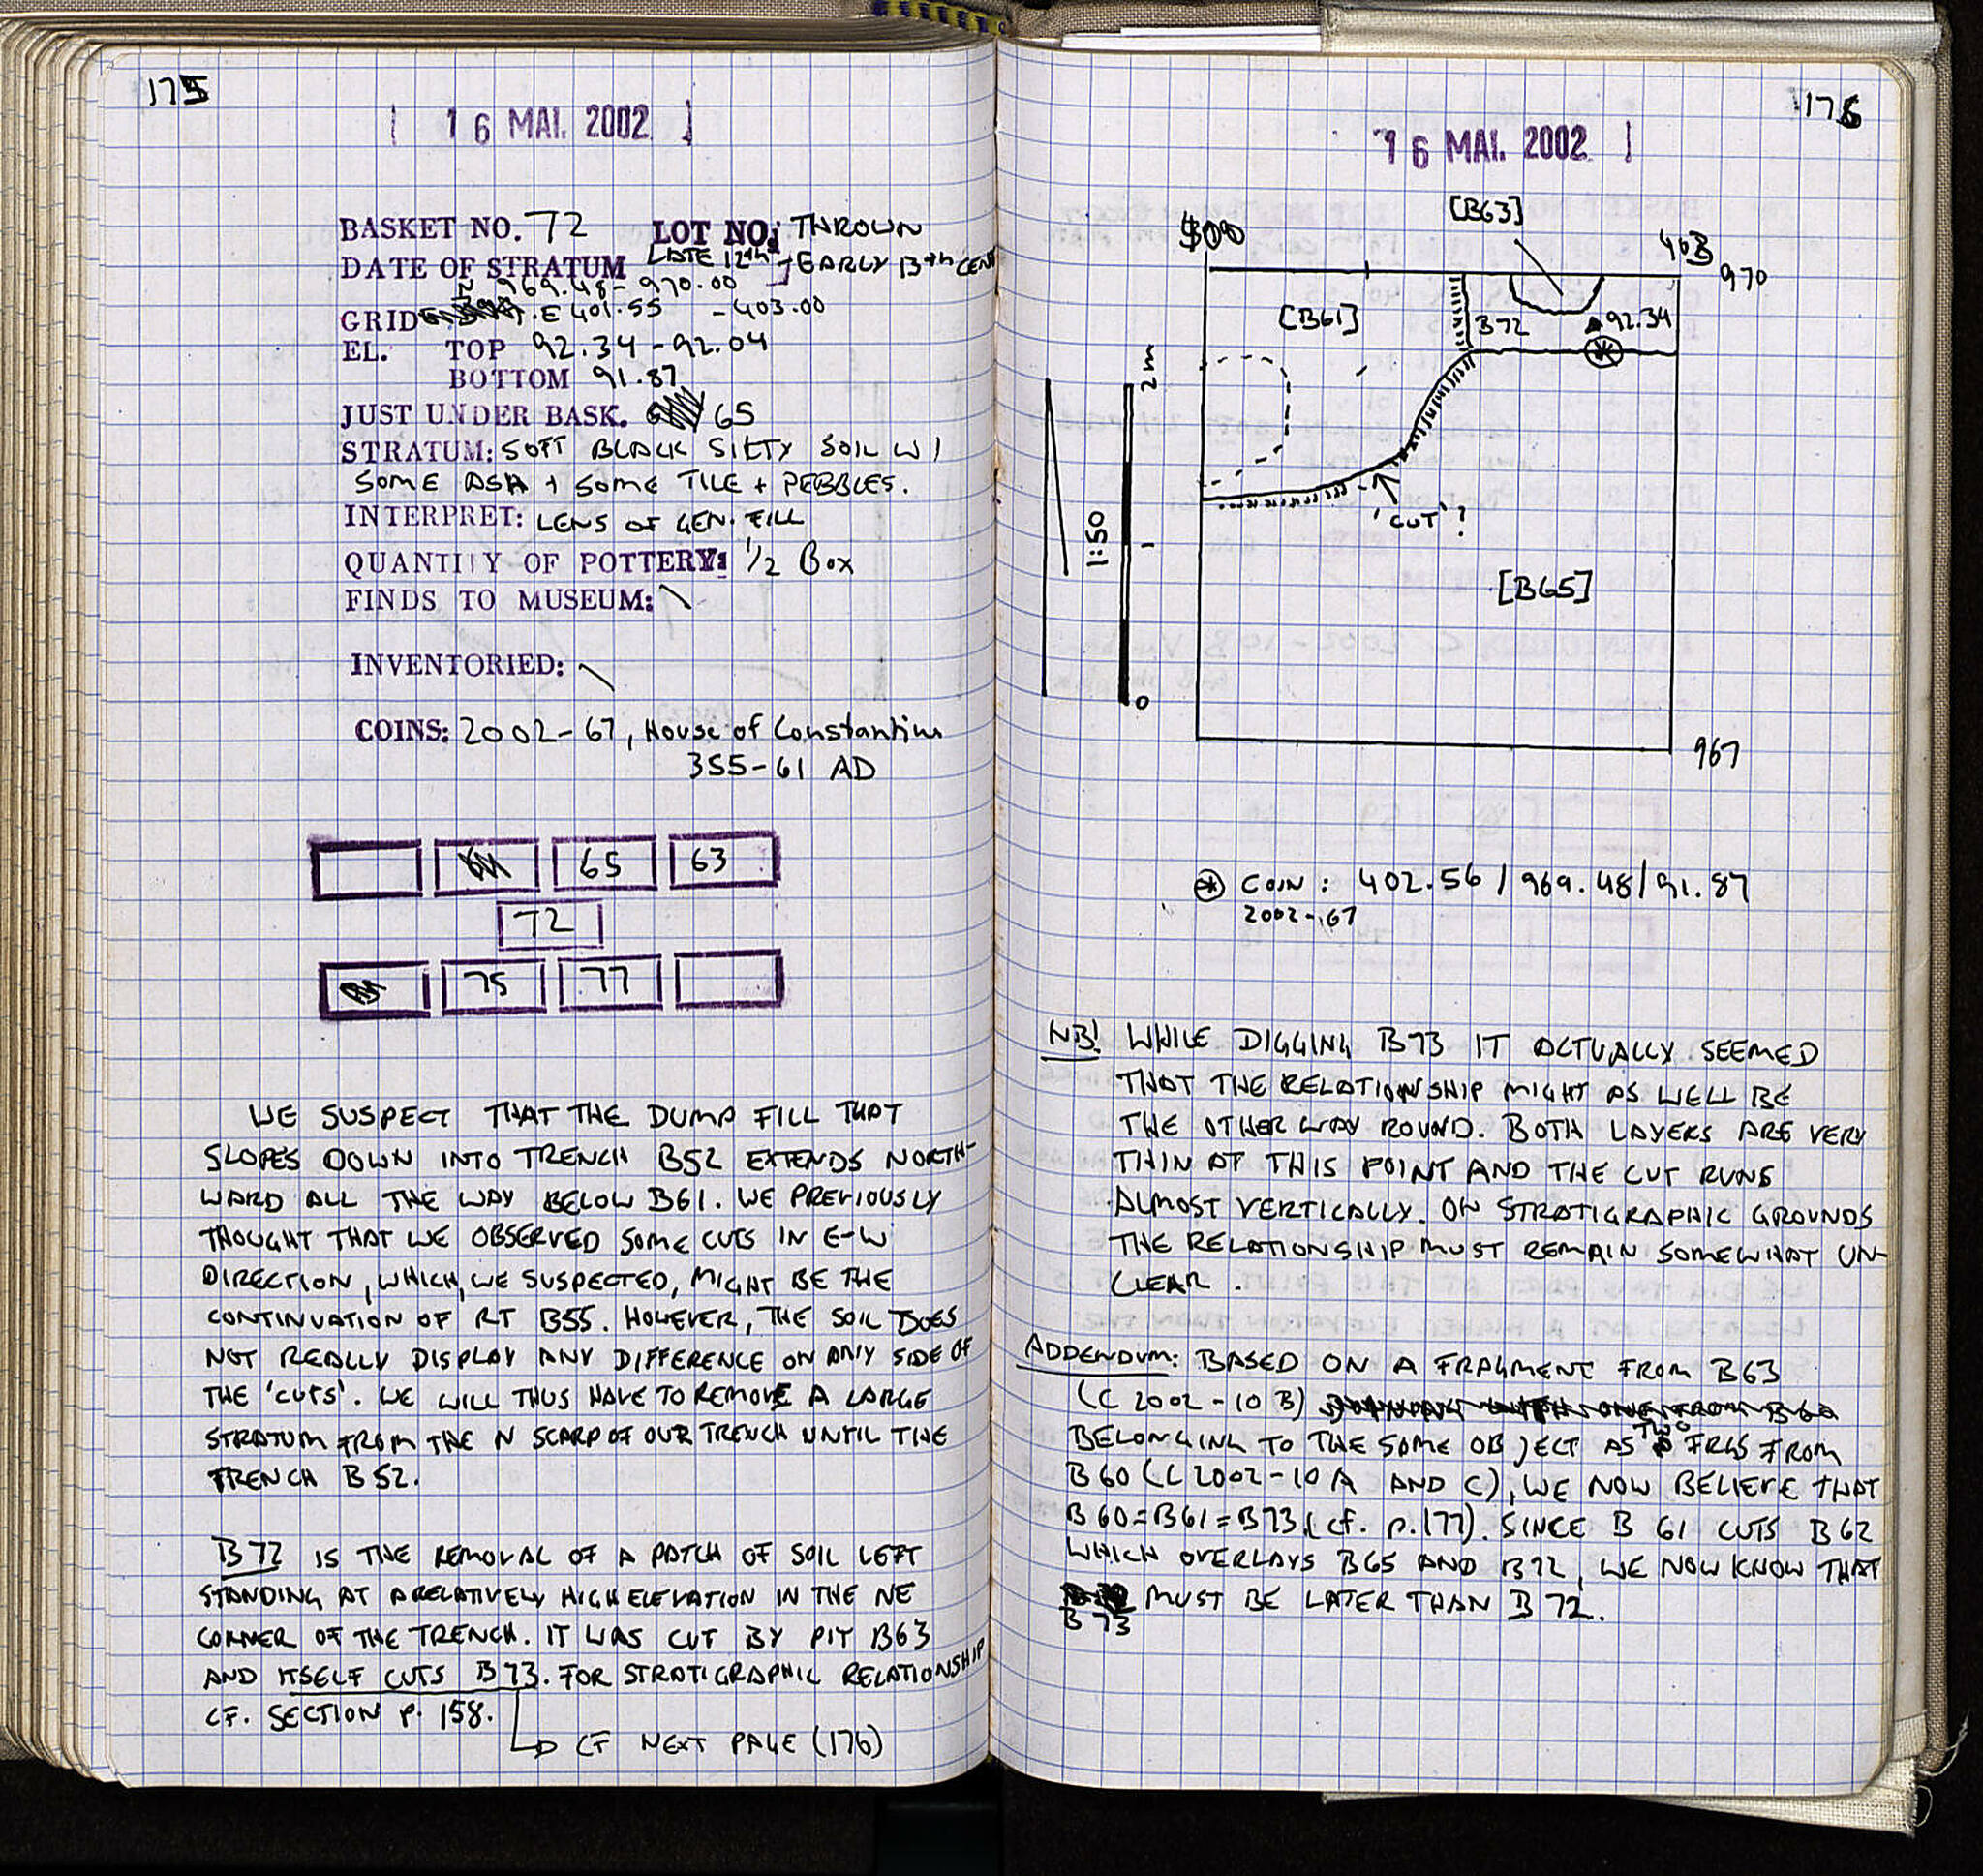 175
16 MAI. 2002
BASKET NO. 72 LOT NO: THROWN
DATE OF STRATUM LATE 12th - EARLY 13th CENT
N 969.48 - 970.00
GRID E 401.55 - 403.00
EL. TOP 92.34 - 92.04
BOTTOM 91.87
JUST UNDER BASK. 65
STRATUM: SOFT BLACK SILTY SOIL W/
SOME ASH + SOME TILE + PEBBLES.
INTERPRET: LENS OF GEN. FILL
QUANTITY OF POTTERY: 1/2 Box
FINDS TO MUSEUM: \
INVENTORIED: \
COINS: 2002-67, House of Constantine
355-61 AD
65 63
72
75 77
WE SUSPECT THAT THE DUMP FILL THAT
SLOPES DOWN INTO TRENCH B52 EXTENDS NORTH-
WARD ALL THE WAY BELOW B61. WE PREVIOUSLY
THOUGHT THAT WE OBSERVED SOME CUTS IN E-W
DIRECTION, WHICH, WE SUSPECTED, MIGHT BE THE
CONTINUATION OF RT B55. HOWEVER, THE SOIL DOES
NOT REALLY DISPLAY ANY DIFFERENCE ON ANY SIDE OF
THE 'CUTS'. WE WILL THUS HAVE TO REMOVE A LARGE
STRATUM FROM THE N SCARP OF OUR TRENCH UNTIL THE
TRENCH B52.
B72 IS THE REMOVAL OF A PATCH OF SOIL LEFT
STANDING AT A RELATIVELY HIGH ELEVATION IN THE NE
CORNER OF THE TRENCH. IT WAS CUT BY PIT B63
AND ITSELF CUTS B73. FOR STRATIGRAPHIC RELATIONSHIP
CF. SECTION P. 158.
CF NEXT PAGE (176)
176
16 MAI. 2002
[B63]
400
403
970
[B61]
B72
92.34
2m
1:50
0
'CUT'?
[B65]
967
COIN: 402.56 / 969.48 / 91.87
2002-67
NB! WHILE DIGGING B73 IT ACTUALLY SEEMED
THAT THE RELATIONSHIP MIGHT AS WELL BE
THE OTHER WAY ROUND. BOTH LAYERS ARE VERY
THIN AT THIS POINT AND THE CUT RUNS
ALMOST VERTICALLY. ON STRATIGRAPHIC GROUNDS
THE RELATIONSHIP MUST REMAIN SOMEWHAT UN-
CLEAR.
ADDENDUM: BASED ON A FRAGMENT FROM B63
(C 2002-10 B)
BELONGING TO THE SAME OBJECT AS TWO FRGS FROM
B60 (C 2002-10 A AND C), WE NOW BELIEVE THAT
B60=B61=B73 (CF. P. 177). SINCE B 61 CUTS B62
WHICH OVERLAYS B65 AND B72, WE NOW KNOW THAT
B 73 MUST BE LATER THAN B 72.